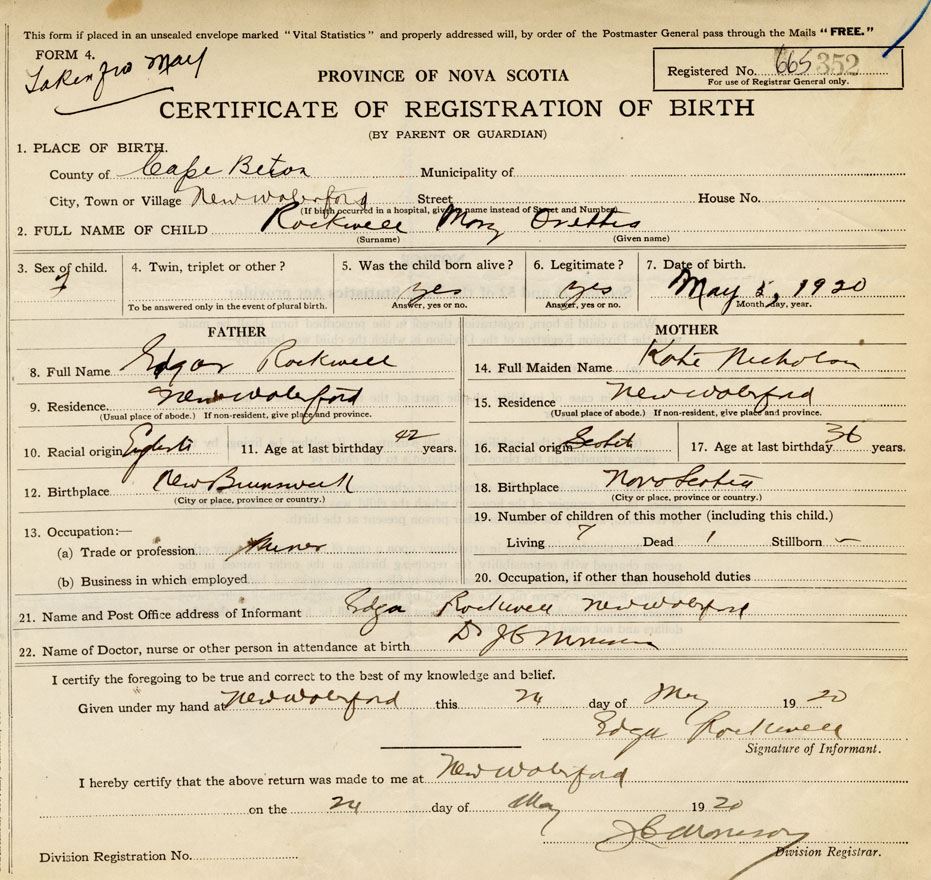 This form if placed in an unsealed envelope marked "Vital Statistics" and properly addressed will, by order of the Postmaster General pass through the Mails "FREE."
FORM 4.
May
PROVINCE OF NOVA SCOTIA
Registered No. 665 352
For use of Registrar General only.
CERTIFICATE OF REGISTRATION OF BIRTH
(BY PARENT OR GUARDIAN)
1. PLACE OF BIRTH.
County of Cape Beton Municipality of
City, Town or Village New Waterford Street House No.
(If birth occurred in a hospital, give name instead of Street and Number)
2. FULL NAME OF CHILD Rockwell Mary
(Surname) (Given name)
3. Sex of child. 4. Twin, triplet or other? 5. Was the child born alive? 6. Legitimate? 7. Date of birth.
f yes yes May 5, 1920
To be answered only in the event of plural birth. Answer, yes or no. Answer, yes or no. Month, day, year.
FATHER
8. Full Name Edgar Rockwell
9. Residence New Waterford
(Usual place of abode.) If non-resident, give place and province.
10. Racial origin 11. Age at last birthday 42 years.
12. Birthplace New Brunswick
(City or place, province or country.)
13. Occupation:—
(a) Trade or profession Miner
(b) Business in which employed
MOTHER
14. Full Maiden Name Katie Nicholson
15. Residence New Waterford
(Usual place of abode.) If non-resident, give place and province.
16. Racial origin Scotch 17. Age at last birthday 36 years.
18. Birthplace Nova Scotia
(City or place, province or country.)
19. Number of children of this mother (including this child.)
Living 7 Dead 1 Stillborn –
20. Occupation, if other than household duties
21. Name and Post Office address of Informant Edgar Rockwell New Waterford
22. Name of Doctor, nurse or other person in attendance at birth Dr J C Morrison
I certify the foregoing to be true and correct to the best of my knowledge and belief.
Given under my hand at New Waterford this 24 day of May 1920
Edgar Rockwell
Signature of Informant.
I hereby certify that the above return was made to me at New Waterford
on the 24 day of May 1920
J C Morrison
Division Registration No. Division Registrar.